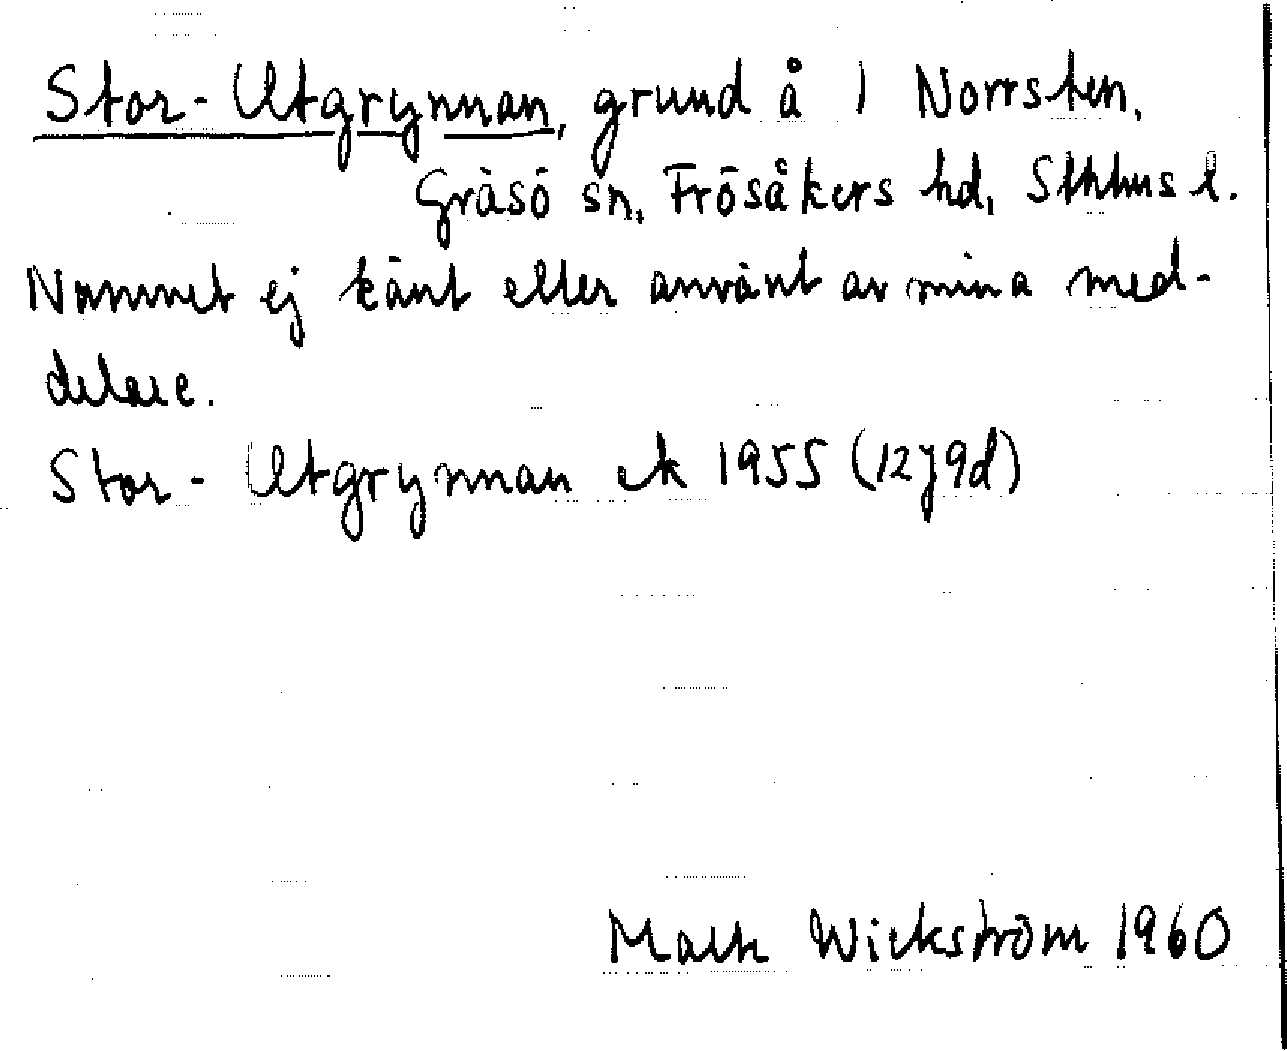 Stor-Utgrynnan, grund å 1 Norrsten,
Gräsö sn, Frösåkers hd, Sthhms l.
Namnet ej känt eller använt av mina med-
delare.
Stor-Utgrynnan ek 1955 (12J9d)
Wickström 1960